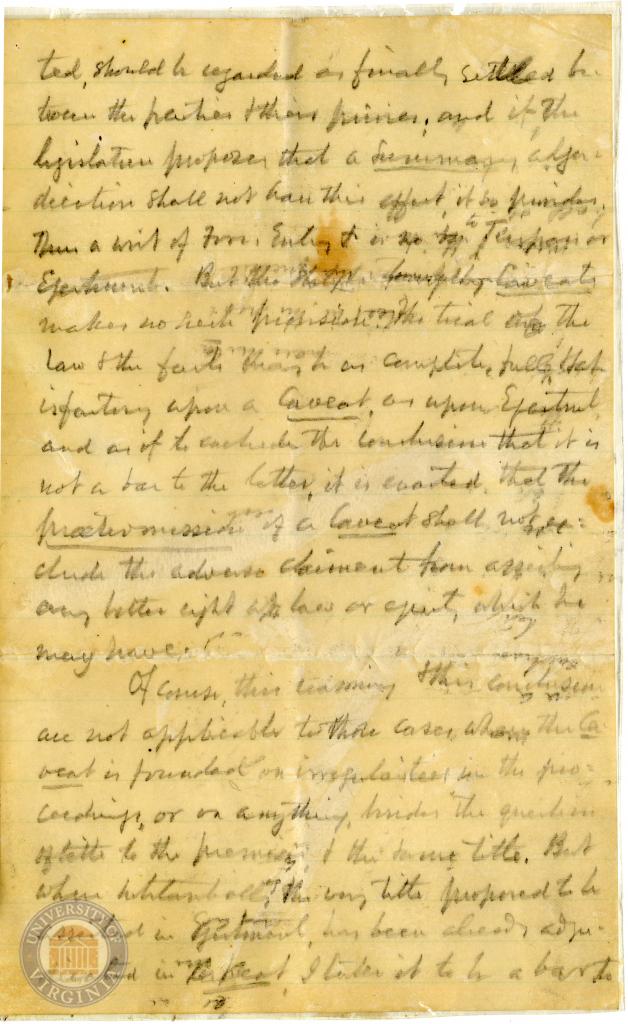 ted, should be regarded as finally settled be-
tween the parties & their privies, and if the
legislature proposes that a Summary adju-
dication shall not have this effect, it so provides,
Thus a writ of Forc. Entry & is no bar to Trespass or
Ejectment. But the Statute Caveats
makes no such provision. The trial of the
law & the facts though as complete, full, & sat-
isfactory upon a Caveat, as upon Ejectmt,
and as if to exclude the conclusion that it is
not a bar to the latter, it is enacted, that the
prætermission of a Caveat shall not ex-
clude the adverse claimant from asserting
any better right at law or equity, which he
may have.
Of course, this reasoning & this conclusion
are not applicable to those cases, where the Ca-
veat is founded on irregularities in the pro-
ceedings, or on anything, besides the question
of title to the premises, & the same title. But
when substantially the very title proposed to be
in Ejectment, has been already adju-
in Caveat, I take it to be a bar to
UNIVERSITY OF VIRGINIA